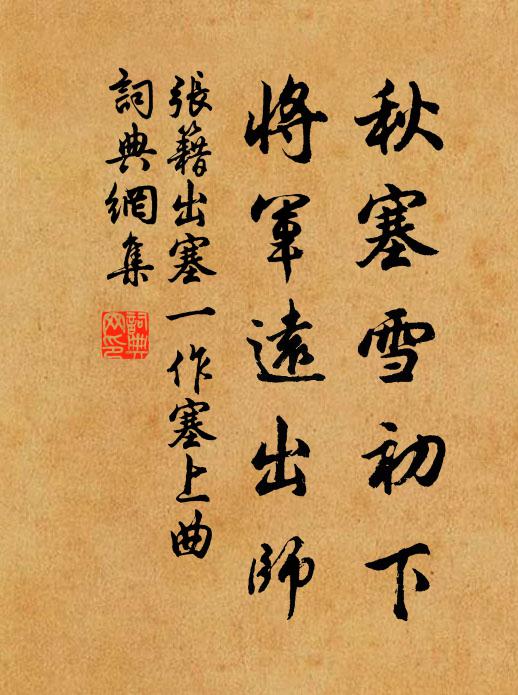 秋塞雪初下
將軍遠出師
張籍出塞一作塞上曲
詞典網集
詞典網印